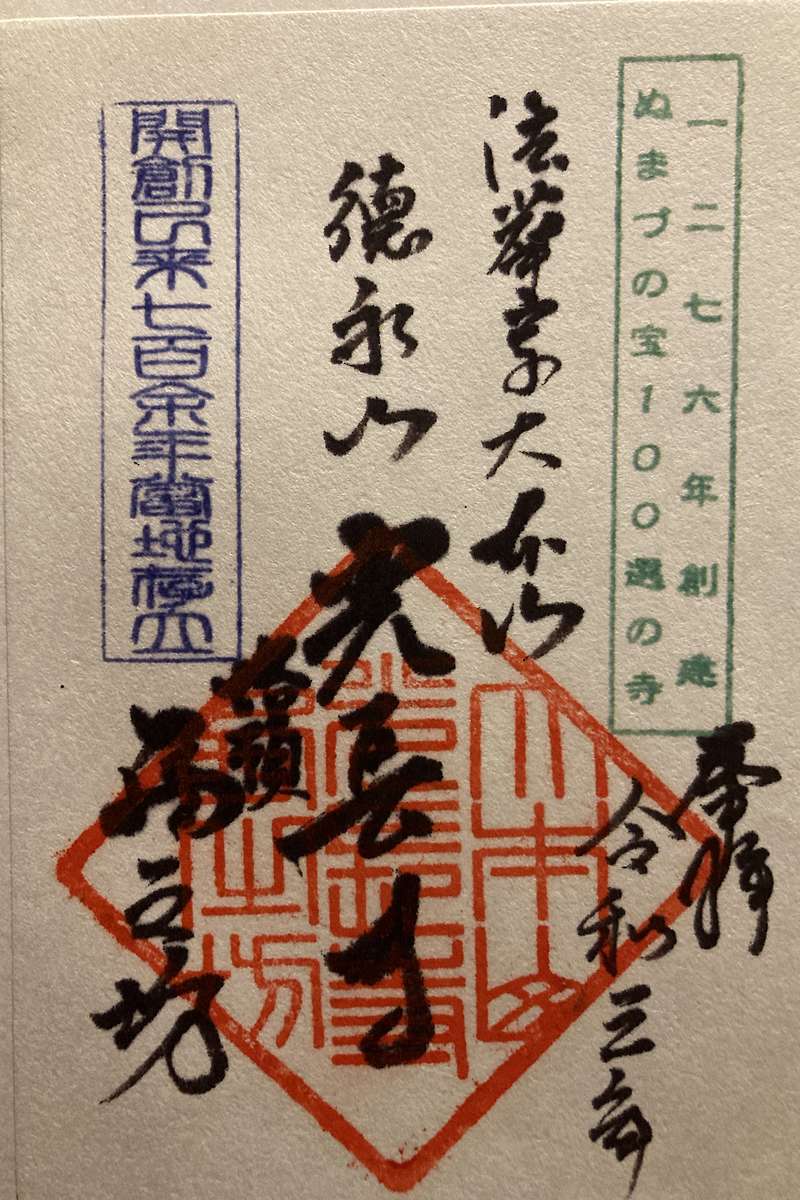 一二七六年創建
ぬまづの宝100選の寺
奉拝
令和三年
法華宗大本山
德永山
光長寺
塔頭
之坊
大本山
光長寺
開創以来七百余年當地